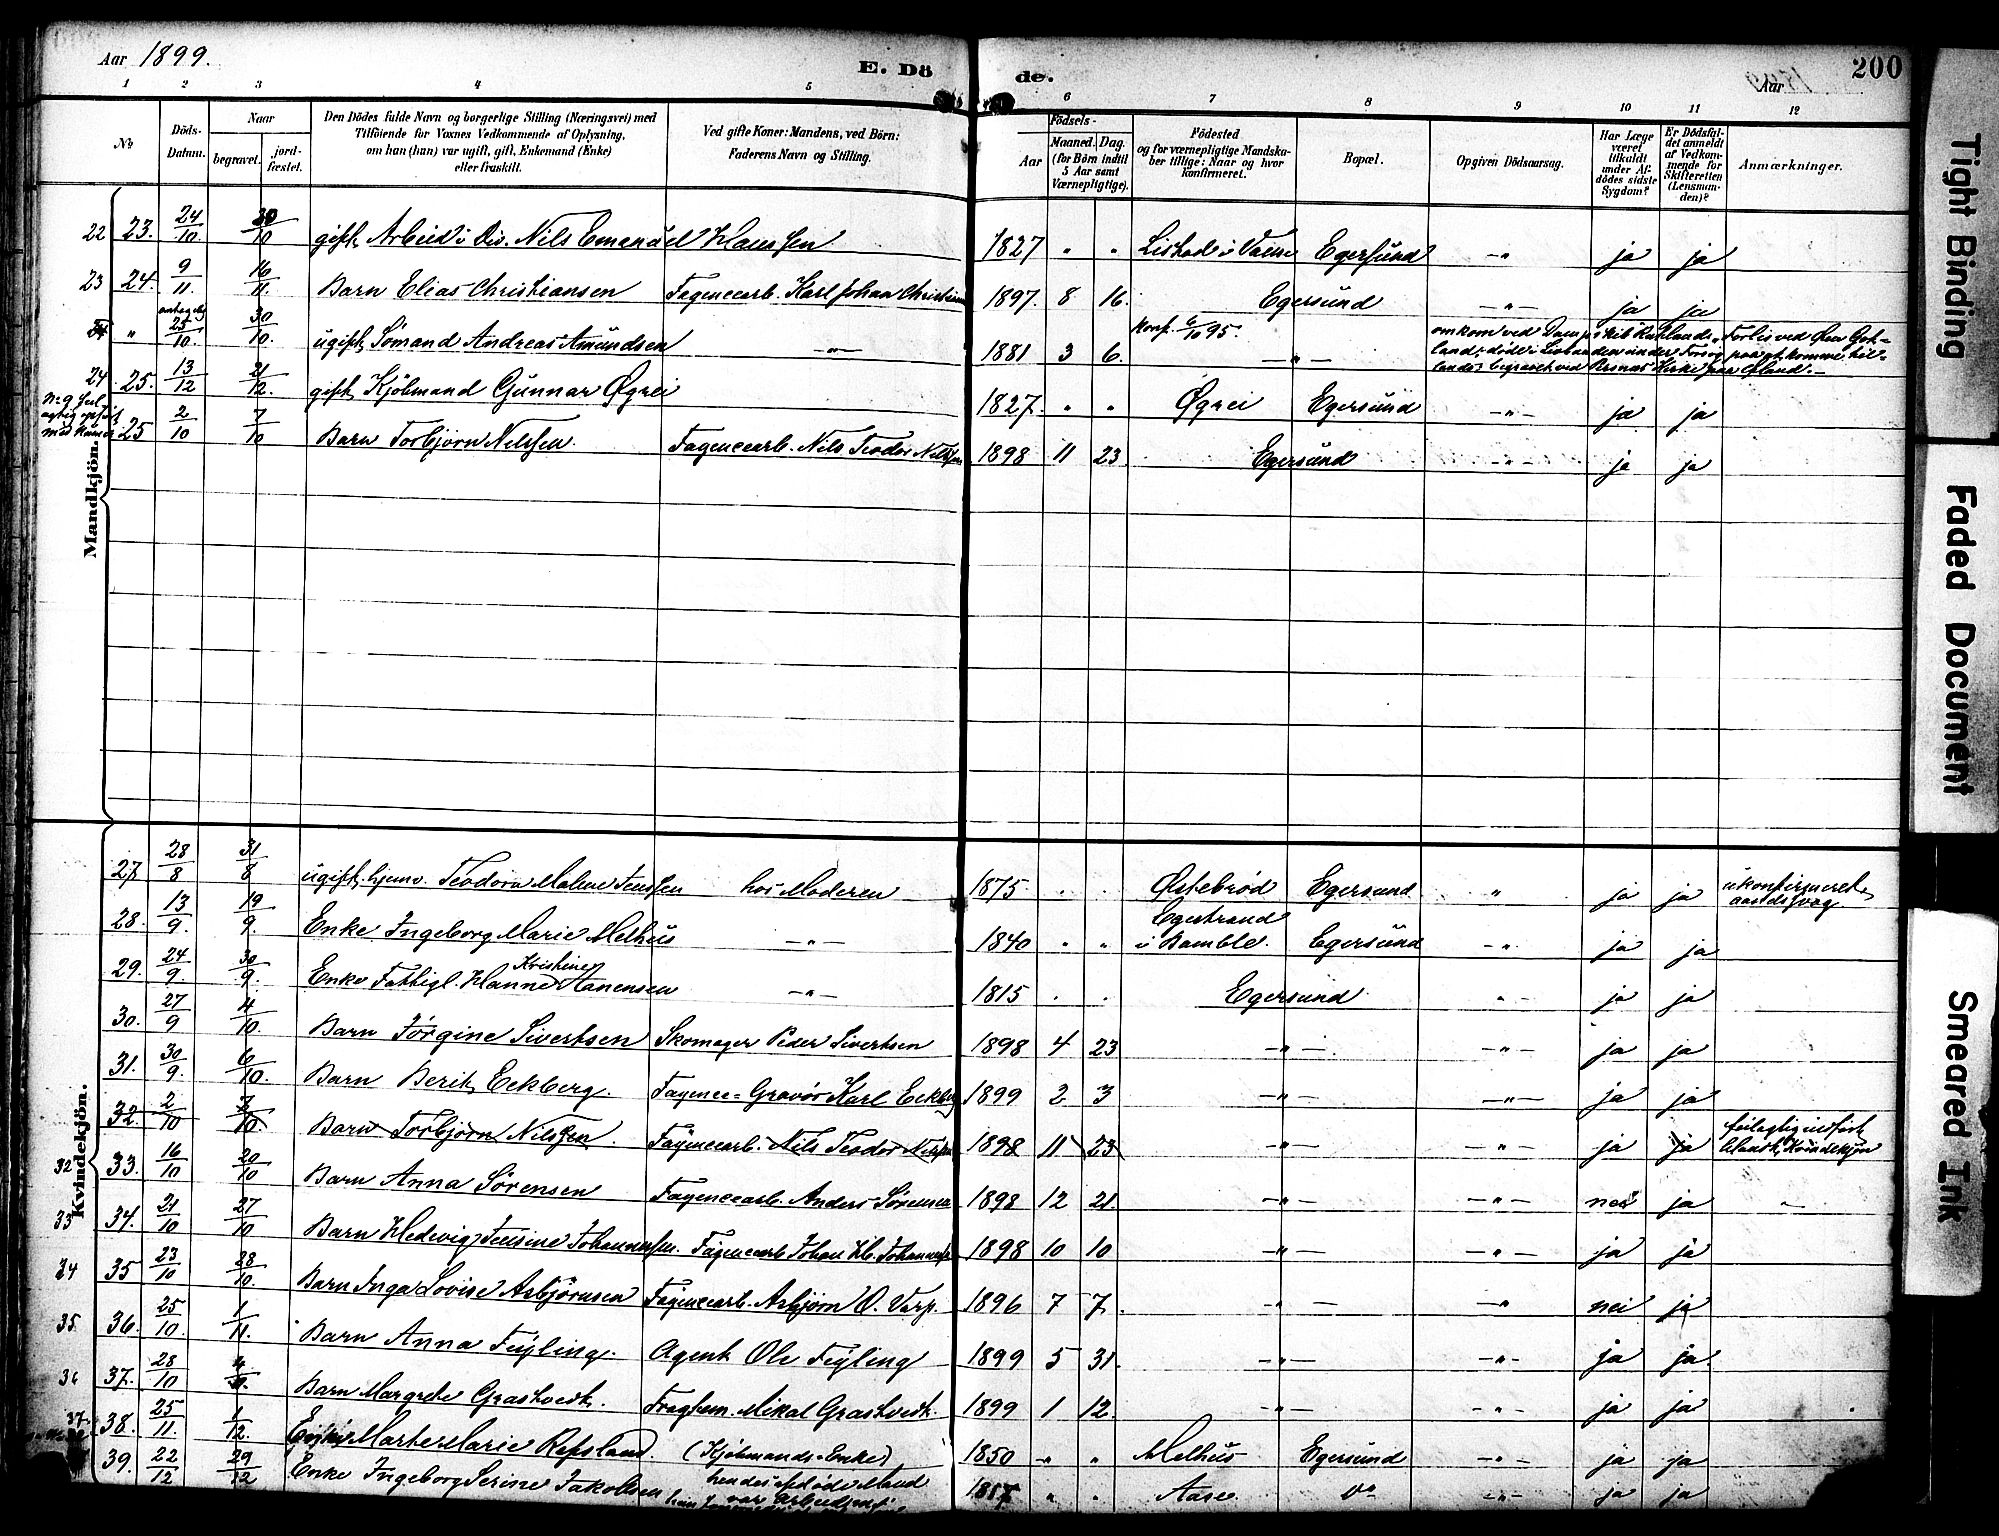 Aar 1899.
E. Dö de.
Aar
200
1 2 3 4 5 6 7 8 9 10 11 12
No
Döds-Datum.
Naar
begravet.
jord-fæstet.
Den Dödes fulde Navn og borgerlige Stilling (Næringsvei) med
Tilföiende for Voxnes Vedkommende af Oplysning,
om han (hun) var ugift, gift, Enkemand (Enke)
eller fraskilt.
Ved gifte Koner: Mandens, ved Börn:
Faderens Navn og Stilling.
Födsels-
Aar
Maaned. Dag.
(for Börn indtil
5 Aar samt
Værnepligtige).
Födested
og for værnepligtige Mandska-
ber tillige: Naar og hvor
konfirmeret.
Bopæl.
Opgiven Dödsaarsag.
Har Læge
været
tilkaldt
under Af-
dödes sidste
Sygdom?
Er Dödsfal-
det anmeldt
af Vedkom-
mende for
Skifteretten
(Lensman-
den)?
Anmærkninger.
Mandkjön.
22 23. 24/10. 30/10 gift Arbeid i Div. Nils Emanuel Hanssen 1827 " " Listad i Vanse Egersund -"- ja ja
23 24. 9/11. 16/11. Barn Elias Christiansen Fayencearb. Karl Johan Christians 1897 8 16. Egersund -"- ja ja
" antagelig 25/10. 30/10. ugift Sömand Andreas Amundsen -"- 1881 3 6. Konf. 6/10 95. -"- omkom ved Damps. Forlis ved Öen Got-
land; döde i Livbaaden under Forsög paa at komme til
lands; begravet ved Kirke paa
24 25. 13/12 21/12. gift Kjöbmand Gunnar Øgrei 1827. " " Øgrei Egersund -"- ja ja
No 9 feil-
agtig opfört
med Kvinder 25 2/10 7/10 Barn Torbjörn Nilssen. Fayencearb. Nils Teodor Nilssen 1898 11 23 Egersund -"- ja ja
Kvindekjön.
27 28/8 31/8 ugift hjemv. Teodora Malene Jenssen hos Moderen 1875 . . Østebrød Egersund " ja ja ukonfirmeret,
aandssvag
28. 13/9. 19/9. Enke Ingeborg Marie Melhus -"- 1840 " " Egestrand
i Bamble. Egersund -"- ja ja
29. 24/9. 30/9. Enke Fattigl. Hanne Kristine Hanensen -"- 1815 . . Egersund " ja ja
30. 27/9 4/10. Barn Jörgine Sivertsen Skomager Peder Sivertsen 1898 4 23 -"- -"- ja ja
31. 30/9. 6/10. Barn Berit Eckberg. Fayence-Gravör Karl Eckberg 1899 2 3 -"- -"- ja ja
32. 2/10 7/10 Barn Torbjörn Nilssen. Fayencearb. Nils Teodor Nilssen 1898 11 23 -"- -"- ja ja feilagtig indfört
blandt Kvindekjön
32 33. 16/10 20/10 Barn Anna Sörensen Fayencearb. Anders Sörensen 1898 12 21. -"- -"- nei ja
33 34. 21/10 27/10 Barn Hedevig Jensine Johannessen. Fayencearb Johan Johannessen 1898 10 10 -"- -"- ja ja
34 35 23/10 28/10. Barn Inga Lovise Asbjörnsen Fayencearb. Asbjörn O. Varp. 1896 7 7. -"- -"- nei ja
35 36. 25/10. 1/11. Barn Anna Fejling. Agent Ole Fejling 1899 5 31. -"- -"- ja ja.
36 37. 28/10 4/11. Barn Margrete Grastvedt. Fragtem. Mikal Grastvedt. 1899 1 12. -"- -"- ja ja
37 38. 25/11. 1/12. Enke Marte Marie Refsland. (Kjöbmands-Enke) 1850 " " Melhus Egersund -"- ja ja
39. 22/12 29/12 Enke Ingeborg Serine Jakobsen hendes afdöde Mand
var Arbeidsmand 1817 " . Aase do -"- ja ja
Tight Binding
Faded Document
Smeared Ink